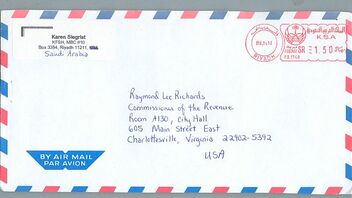 Karen Siegrist
KFSH, MBC #10
Box 3354, Riyadh 11211,
Saudi Arabia
RIYADH
K.S.A
SR
1.50
Raymond Lee Richards
Commissioner of the Revenue
Room A130, City Hall
605 Main Street East
Charlottesville, Virginia 22902-5392
USA
BY AIR MAIL
PAR AVION